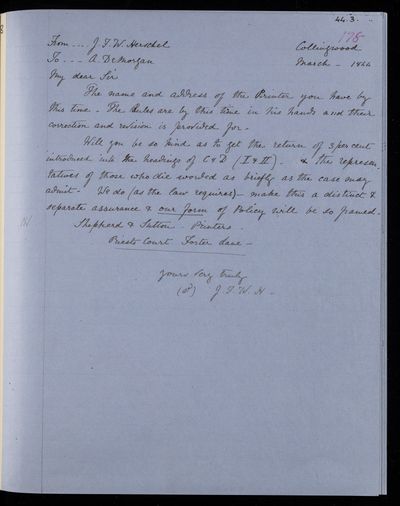 44.3.
178
From ... J. F. W. Herschel Collingwood
To ... A. DeMorgan March - 1844
My dear Sir
The name and address of the Printer you have by
this time. The Rules are by this time in his hands and their
correction and revision is provided for -
Will you be so kind as to get the return of 3 per cent
introduced into the headings of C & D (I & II). - & the represen-
tatives of those who die worded as briefly as the case may
admit - We do (as the law requires) - make this a distinct &
separate assurance & our form of Policy will be so framed -
Shepherd & Sutton - Printers -
Priests Court Foster Lane -
yours very truly
J. F. W. H -